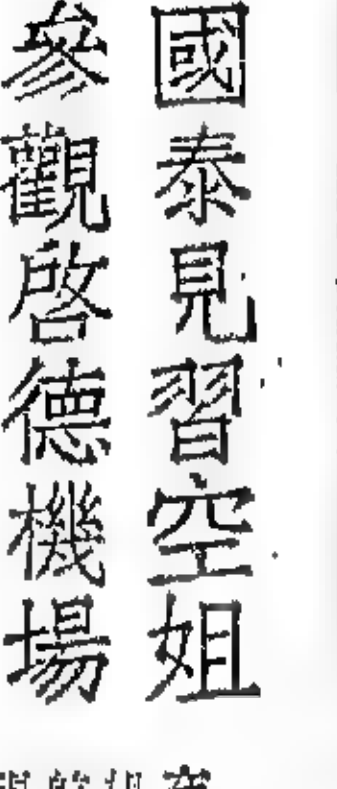 國泰見習空姐
參觀啓德機場